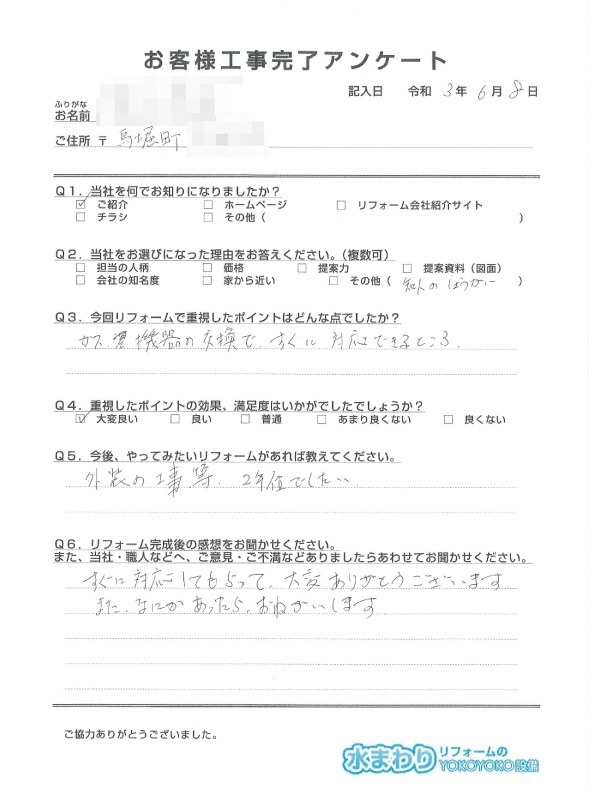 お客様工事完了アンケート
記入日 令和 3年 6月 8日
ふりがな
お名前
ご住所 〒 馬堀町
Q1．当社を何でお知りになりましたか？
☑ ご紹介 □ ホームページ □ リフォーム会社紹介サイト
□ チラシ □ その他（ ）
Q2．当社をお選びになった理由をお答えください。（複数可）
□ 担当の人柄 □ 価格 □ 提案力 □ 提案資料（図面）
□ 会社の知名度 □ 家から近い □ その他（ 知人の ）
Q3．今回リフォームで重視したポイントはどんな点でしたか？
ガス 機器の交換で、すぐに対応できるところ。
Q4．重視したポイントの効果、満足度はいかがでしたでしょうか？
☑ 大変良い □ 良い □ 普通 □ あまり良くない □ 良くない
Q5．今後、やってみたいリフォームがあれば教えてください。
外装の工事等、2年位でしたい
Q6．リフォーム完成後の感想をお聞かせください。
また、当社・職人などへ、ご意見・ご不満などありましたらあわせてお聞かせください。
すぐに対応してもらって、大変ありがとうございます
また、なにかあったら、おねがいします
ご協力ありがとうございました。
水まわりリフォームのYOKOYOKO設備